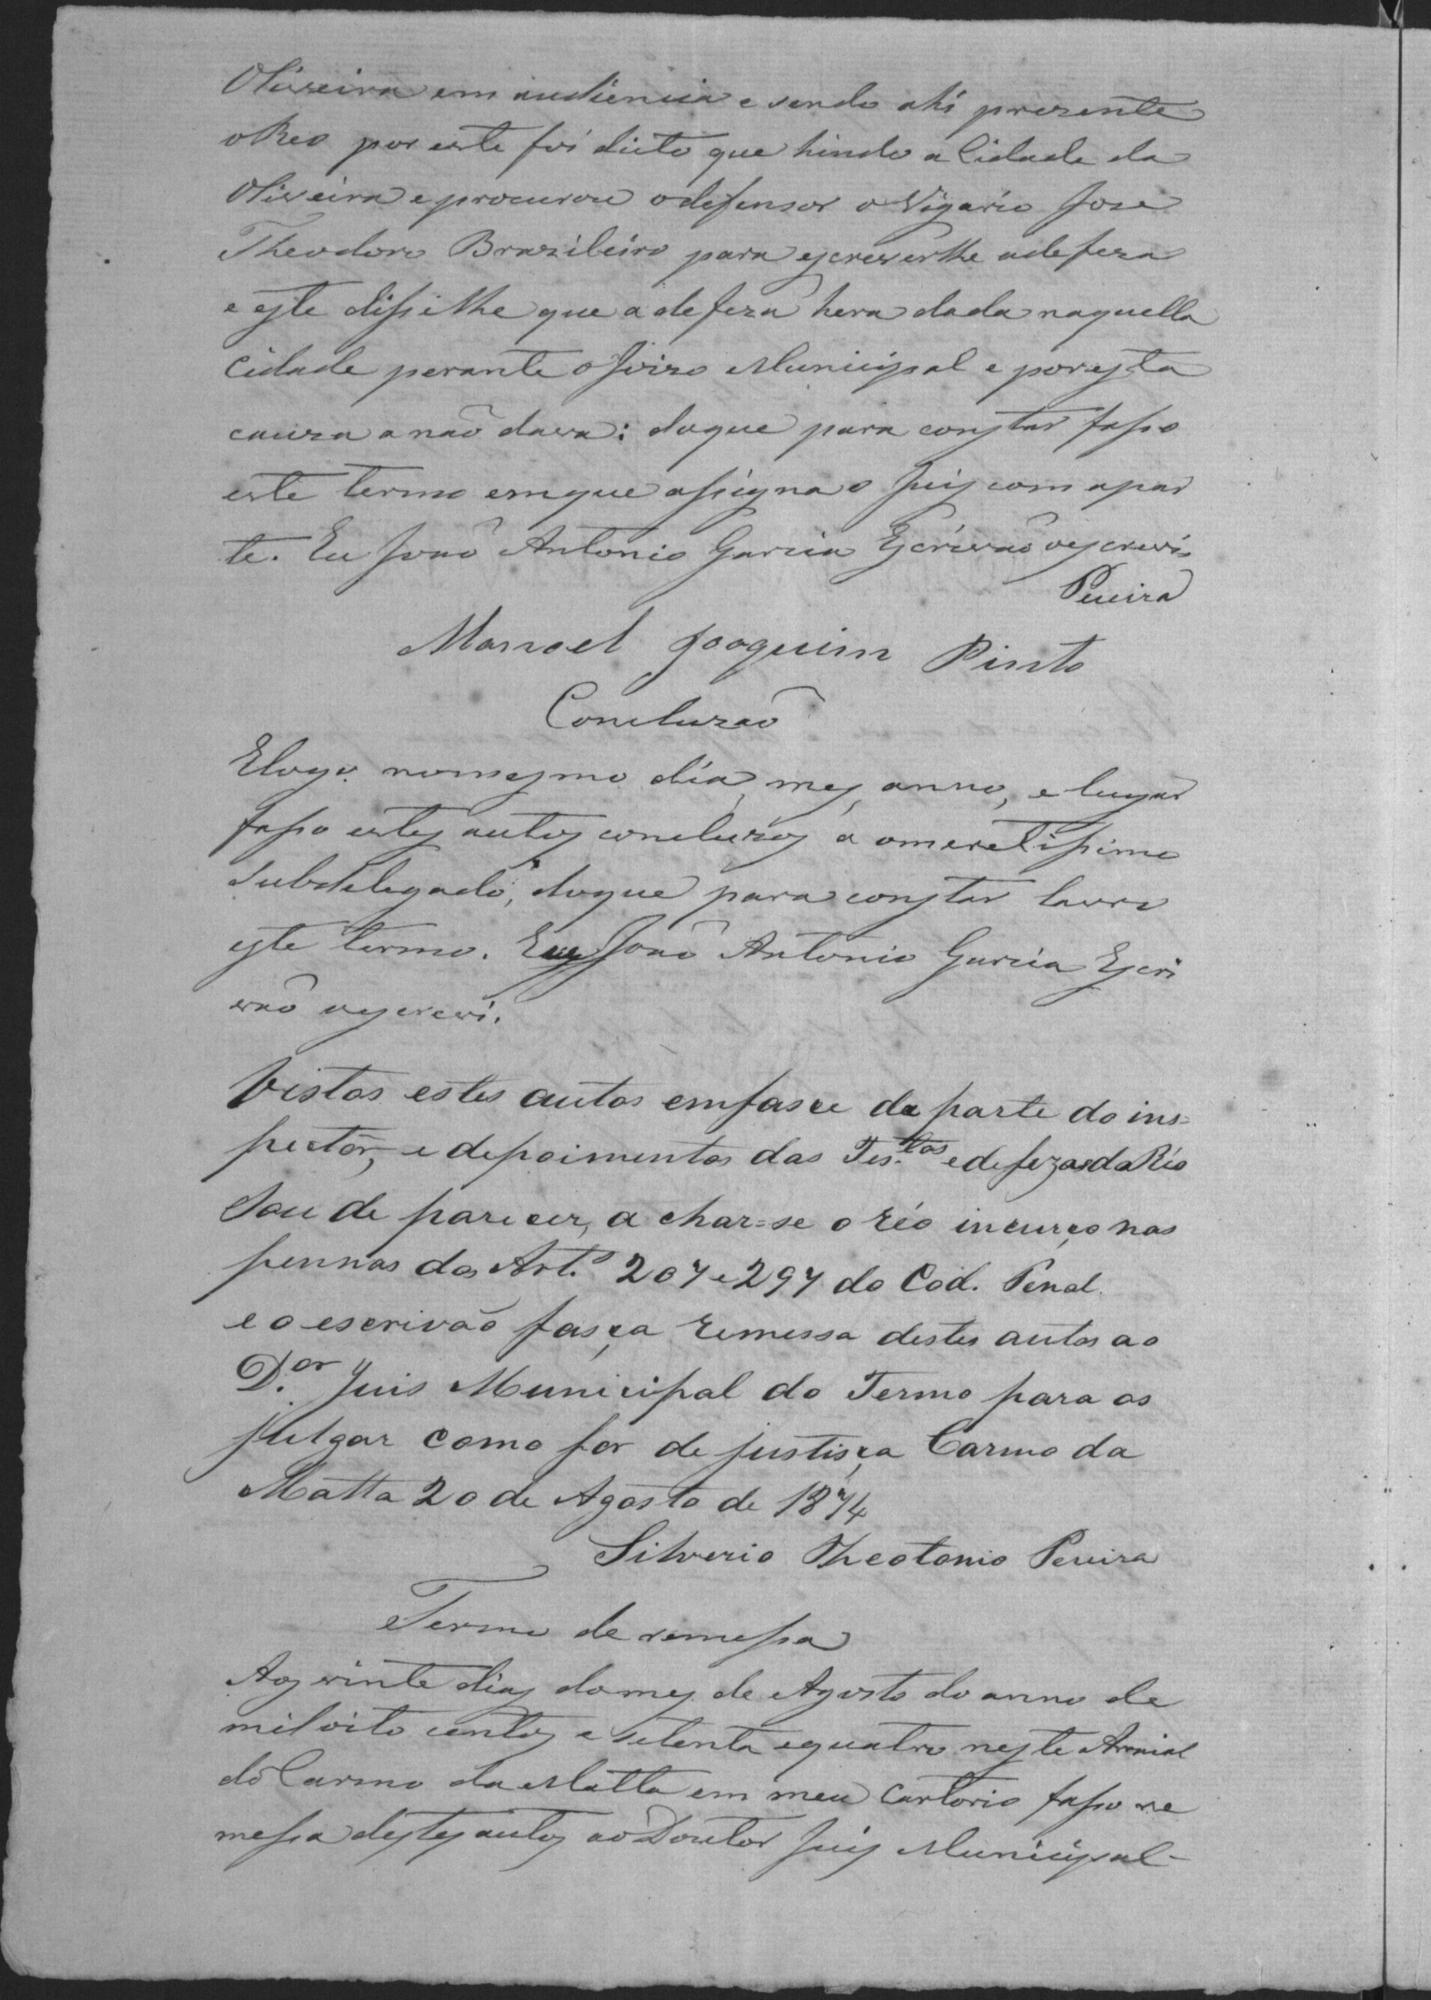 Oliveira em audiencia e sendo ahi prezente
o Reo por este foi dicto que hindo a Cidade da
Oliveira e procurou o defensor o Vigario Jose
Theodoro Brazileiro para escreverlhe a defeza
e este dissilhe que a defeza hera dada naquella
Cidade perante o Joizo Municipal e por esta
cauza a naõ dava: do que para constar fasso
este termo em que assigna o Juis com a par
te. Eu Joaõ Antonio Garcia Escrivaõ o escrevi.
Pereira
Manoel Joaquim Pinto
Concluzaõ
E logo no mesmo dia, mes, anno, e lugar
fasso estes autos concluzos a o meretissimo
Subdelegado, do que para constar lavro
este termo. Eu Joaõ Antonio Garcia Escri
vaõ o escrevi.
Vistos estes autos em fasce da parte do ins=
pector, e depoimentos das Tes.tas e defeza do Réo
Sou de parecer, a char=se o réo incurço nas
pennas dos Art.os 207 e 297 do Cod. Penal.
e o escrivão fasça remessa destes autos ao
D.or Juis Municipal do Termo para os
julgar como for de justisça Carmo da
Matta 20 de Agosto de 1874
Silverio Theotonio Pereira
Termo de remessa
Aos vinte dias do mes de Agosto do anno de
mil oito centos e setenta e quatro neste Arraial
do Carmo da Matta em meu Cartorio fasso re
messa destes autos ao Doutor Juis Municipal-